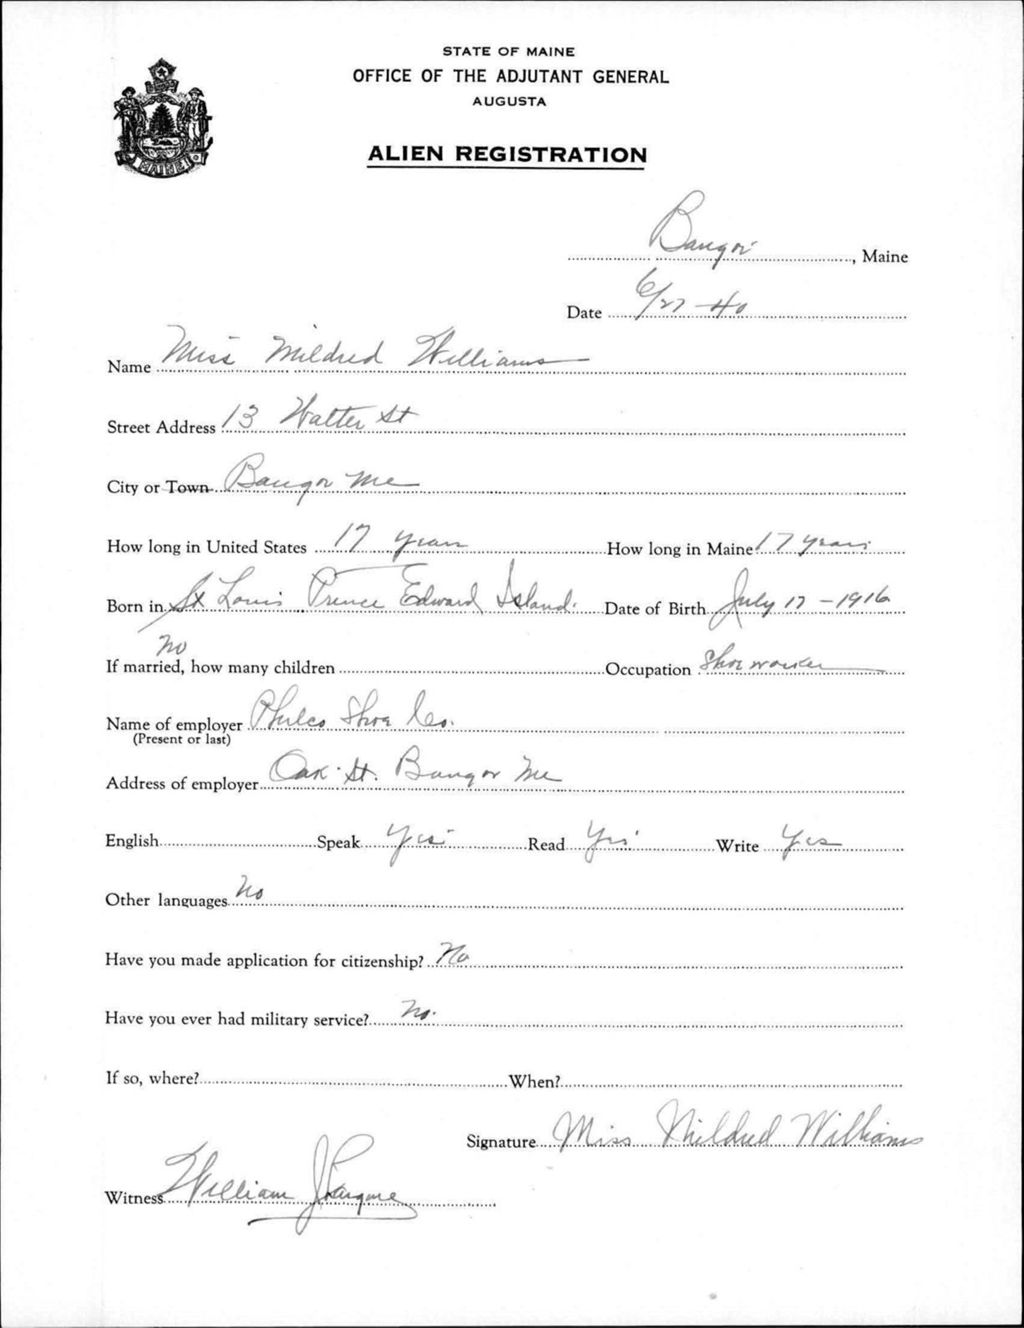 STATE OF MAINE
OFFICE OF THE ADJUTANT GENERAL
AUGUSTA
ALIEN REGISTRATION
MAINE
Bangor, Maine
Date 6/27-40
Name Miss Mildred Williams
Street Address 13 Walter St
City or Town Bangor Me
How long in United States 17 years How long in Maine 17 years
Born in St Louis Prince Edward Island. Date of Birth July 17-1916
No
If married, how many children Occupation Shoe worker
Name of employer Philco Shoe Co.
(Present or last)
Address of employer Oak St. Bangor Me
English Speak Yes Read Yes Write Yes
Other languages No
Have you made application for citizenship? No
Have you ever had military service? No.
If so, where? When?
Signature Miss Mildred Williams
Witness William J